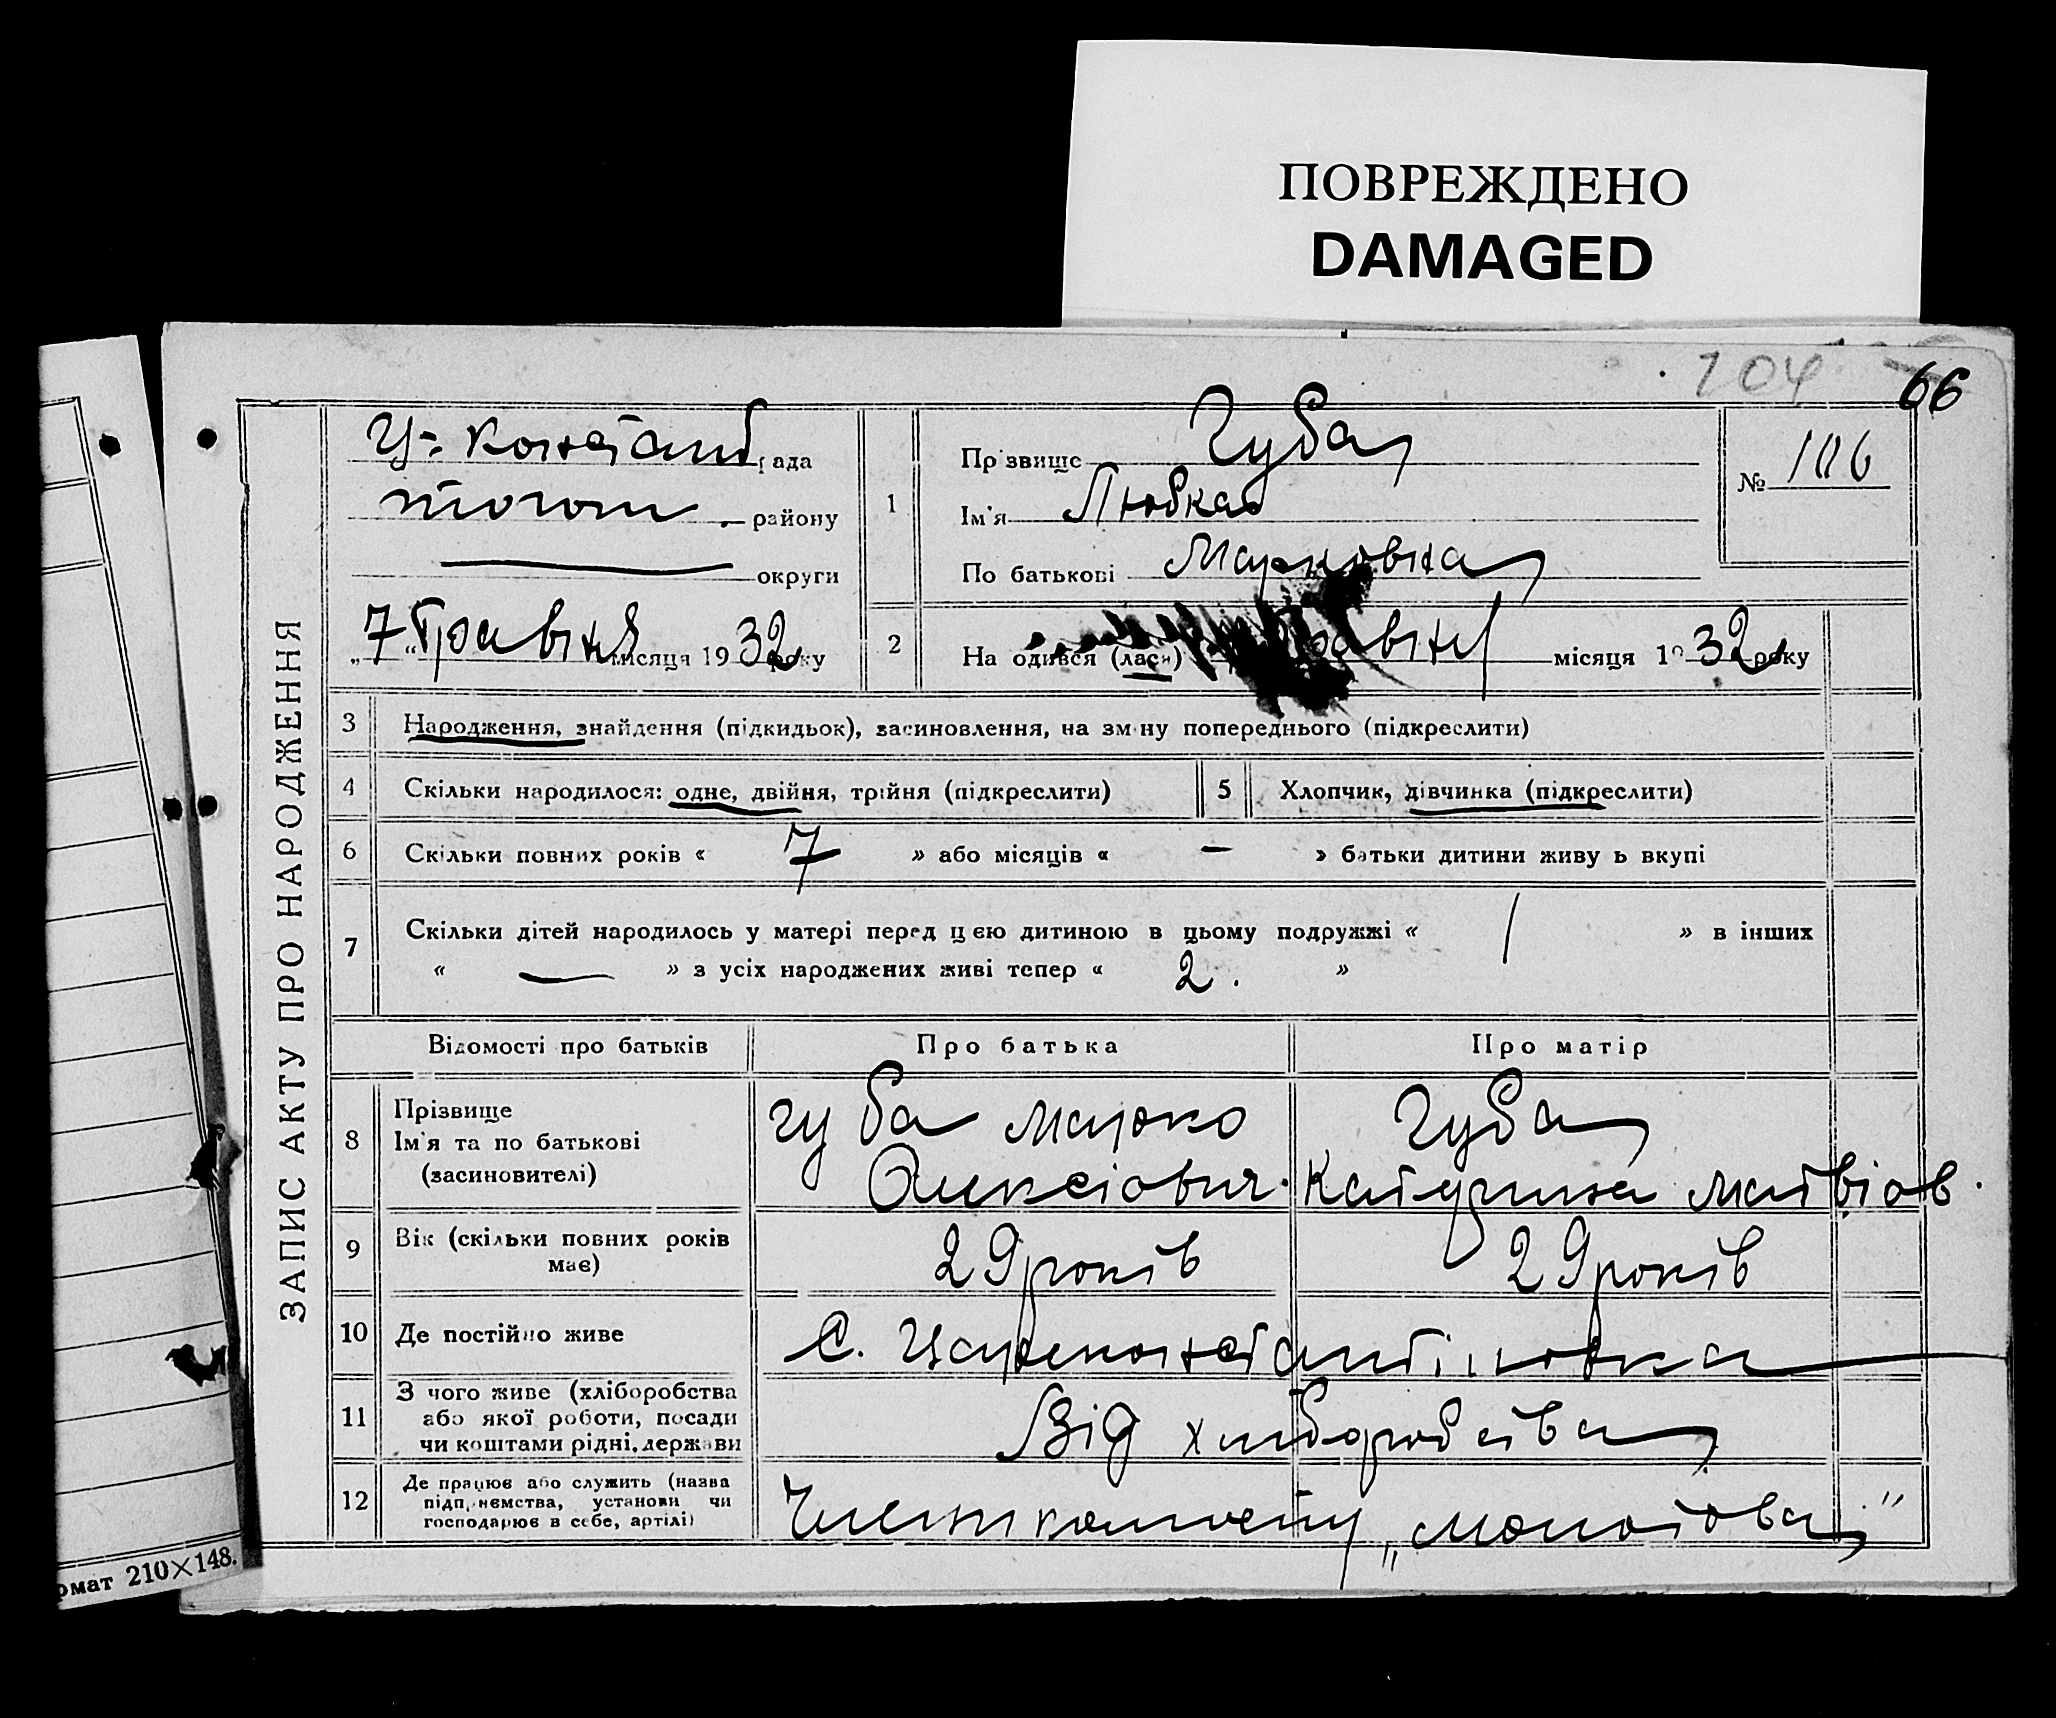 ПОВРЕЖДЕНО
DAMAGED
104
66
ЗАПИС АКТУ ПРО НАРОДЖЕННЯ
Ц-Констант рада
району
округи
„7“ травня місяця 1932 року
1
Прізвище Губа
Ім'я Любка
По батькові Марковна
№ 106
2
Народився (лася) травня місяця 1932 року
3 Народження, знайдення (підкидьок), засиновлення, на зміну попереднього (підкреслити)
4 Скільки народилося: одне, двійня, трійня (підкреслити)
5 Хлопчик, дівчинка (підкреслити)
6 Скільки повних років « 7 » або місяців « — » батьки дитини живуть вкупі
7 Скільки дітей народилось у матері перед цією дитиною в цьому подружжі « 1 » в інших
« — » з усіх народжених живі тепер « 2. »
Відомості про батьків Про батька Про матір
8 Прізвище
Ім'я та по батькові
(засиновителі)
Губа Марко
Олексіович.
Губа
Катерина Матвіов.
9 Вік (скільки повних років
має)
29 років
29 років
10 Де постійно живе
С. Цареконстантіновка
11 З чого живе (хліборобства
або якої роботи, посади
чи коштами рідні, держави
Від хліборобства
12 Де працює або служить (назва
підприємства, установи чи
господарює в себе, артілі)
Члени колгоспу „Молотова“
рмат 210×148.